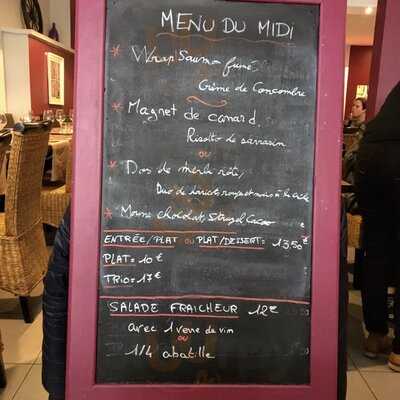 MENU DU MIDI
* Wrap' Saumon fumé
Crème de Concombre
* Magret de canard
Risotto de sarrasin
ou
* Dos de merlu rôti,
Duo de
* chocolat,
ENTRÉE/PLAT OU PLAT/DESSERT = 13,50€
PLAT = 10€
TRIO = 17€
SALADE FRAICHEUR 12€
avec 1 verre de vin
ou
1/4 abatille